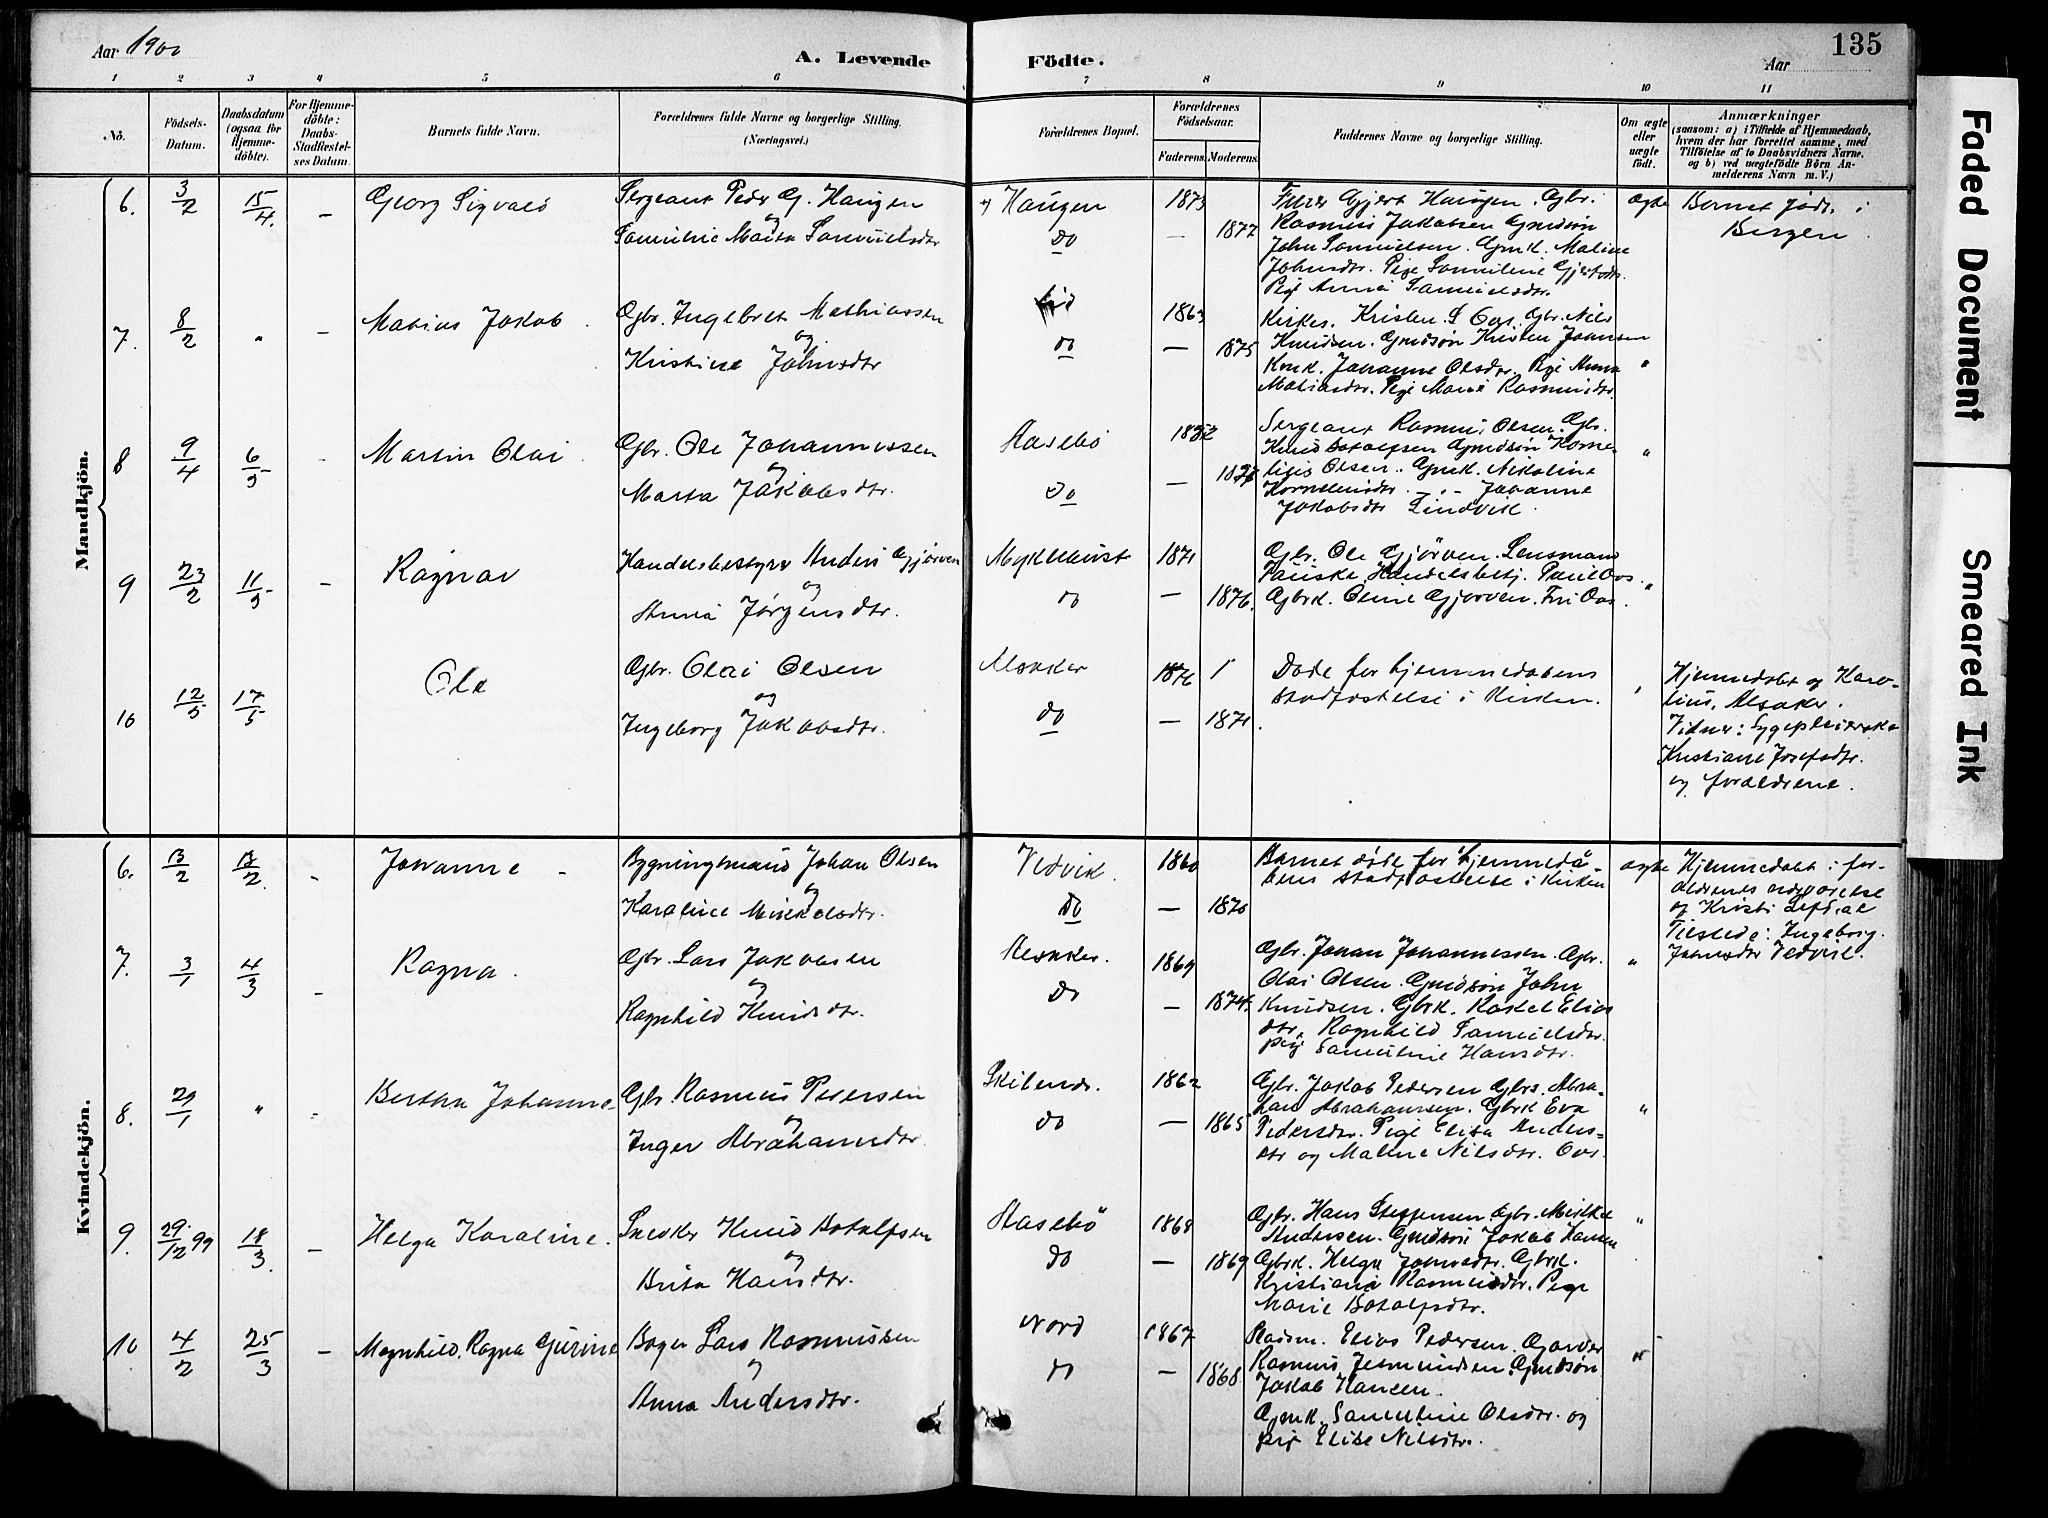 Aar 1900
A. Levende Födte.
Aar
135
Faded Document
Smeared Ink
1 2 3 4 5 6 7 8 9 10 11
No.
Födsels-
Datum.
Daabsdatum
(ogsaa for
Hjemme-
døbte).
For Hjemme-
døbte:
Daabs-
Stadfæstel-
ses Datum.
Barnets fulde Navn.
Forældrenes fulde Navne og borgerlige Stilling.
(Næringsvei.)
Forældrenes Bopæl.
Forældrenes
Födselsaar.
Faderens. Moderens.
Faddernes Navne og borgerlige Stilling.
Om ægte
eller
uægte
födt.
Anmærkninger
(saasom: a) i Tilfælde af Hjemmedaab,
hvem der har forrettet samme, med
Tilföielse af to Daabsvidners Navne,
og b) ved uægtefödte Börn An-
melderens Navn m. V.)
Mandkjön.
6. 3/2 15/4. – Georg Sigvald
Sergeant Peder G. Haugen
og
Samuline Marta Samuelsdtr
Haugen
Do
1873
– 1877
Gjert Haugen. Gbr.
Rasmus Jakobsen Gmdsön
John Samuelsen. Gmk. Maline
Johnsdtr. Pige Samuline Gjertsdtr.
Pige Anna Samuelsdtr.
ægte
Barnet födt i
Bergen
7. 8/2 " – Matias Jakob
Gbr. Ingebret Mathiassen
og
Kristine Johnsdtr
do
1863
– 1875
Kirkes. Kristen S Os. Gbr. Nils
Knudsen. Gmdsön Kristen Johnsen
Konk. Johanne Olsdtr. Pige Anna
Matiasdtr. Pige Marie Rasmusdtr.
"
8 9/4 6/5 – Martin Olai
Gbr. Ole Johannessen
og
Marta Jakobsdtr.
Aasebö
Do
–
Sergeant Rasmus Olsen. Gbr.
Knud Botolfsen Gmdsön Korne-
lius Olsen. Gmk. Nikoline
Korneliusdtr. – " – Johanne
Jakobsdtr Lindvik.
"
9 23/2 11/5 – Ragnar
Handelsbestyrer Anders Gjörven
og
Anna Jörgensdtr.
Myklebust
do
1871
– 1876.
Gbr. Ole Gjörven. Lensmand
Fauske Handelsbetj. Paul Os.
Gbrk. Oline Gjörven. Os.
"
10 12/5 17/5 Ole
Gbr. Olai Olsen
og
Ingeborg Jakobsdtr.
Alsaker
do
1876
– 1871.
Döde för hjemmedaabens
stadfæstelse i Kirken.
"
Hjemmedöbt og Karo-
lius, Alsaker.
Vidner: Sygepleierske
Kristiane Josefsdtr.
og forældrene.
Kvindekjön.
6. 13/2 13/2 – Johanne –
Bygningsmand Johan Olsen
og
Karoline Mikkelsdtr.
Vedvik.
Do
1860
– 1870
Barnet döde for hjemmedaa-
bens stadfæstelse i Kirken
ægte
Hjemmedöbt i for-
ældrenes nærværelse
og Kristi Lefdal
Tilstede: Ingeborg
Johnsdtr Vedvik.
7. 3/1 4/3 – Ragna.
Gbr. Lars Jakobsen
og
Ragnhild Knudsdtr.
Alsaker.
Do
1869
– 1874.
Gbr. Johan Johannessen. Gbr.
Olai Olsen. Gmdsön John
Knudsen. Gbrk. Rakel Elias
dtr, Ragnhild Samuelsdtr.
pige Samuline Hansdtr.
"
8. 29/1 " – Bertha Johanne
Gbr. Rasmus Pedersen
og
Inger Abrahamsdtr.
do
1862
– 1865
Gbr. Jakob Pedersen Gbrs. Abra-
ham Abrahamsen. Gbrk Eva
Pedersdtr. Pige Elisa Anders-
dtr og Maline Nilsdtr. Os.
"
9. 29/12 99 18/3 – Helga Karoline.
Snedker Knud Botolfsen
og
Brita Hansdtr.
Aasebö
Do
1868
– 1869
Gbr. Hans Steffensen. Gbr. Mikkel
Andersen. Gmdsön Jakob Hansen
Gbrk. Helga Johnsdtr. Gbrk.
Kristiane Rasmusdtr. Pige
Marie Botolfsdtr.
"
10 4/2 25/3 – Magnhild, Ragna Gurine
Bager Lars Rasmussen
og
Anna Andersdtr.
Nord
do
1867
– 1868
Elias Pedersen. Garver
Rasmus Jetmundsen. Gmdsön
Jakob Hansen.
Gmk. Samuline Olsdtr. og
pige Elise Nilsdtr.
"